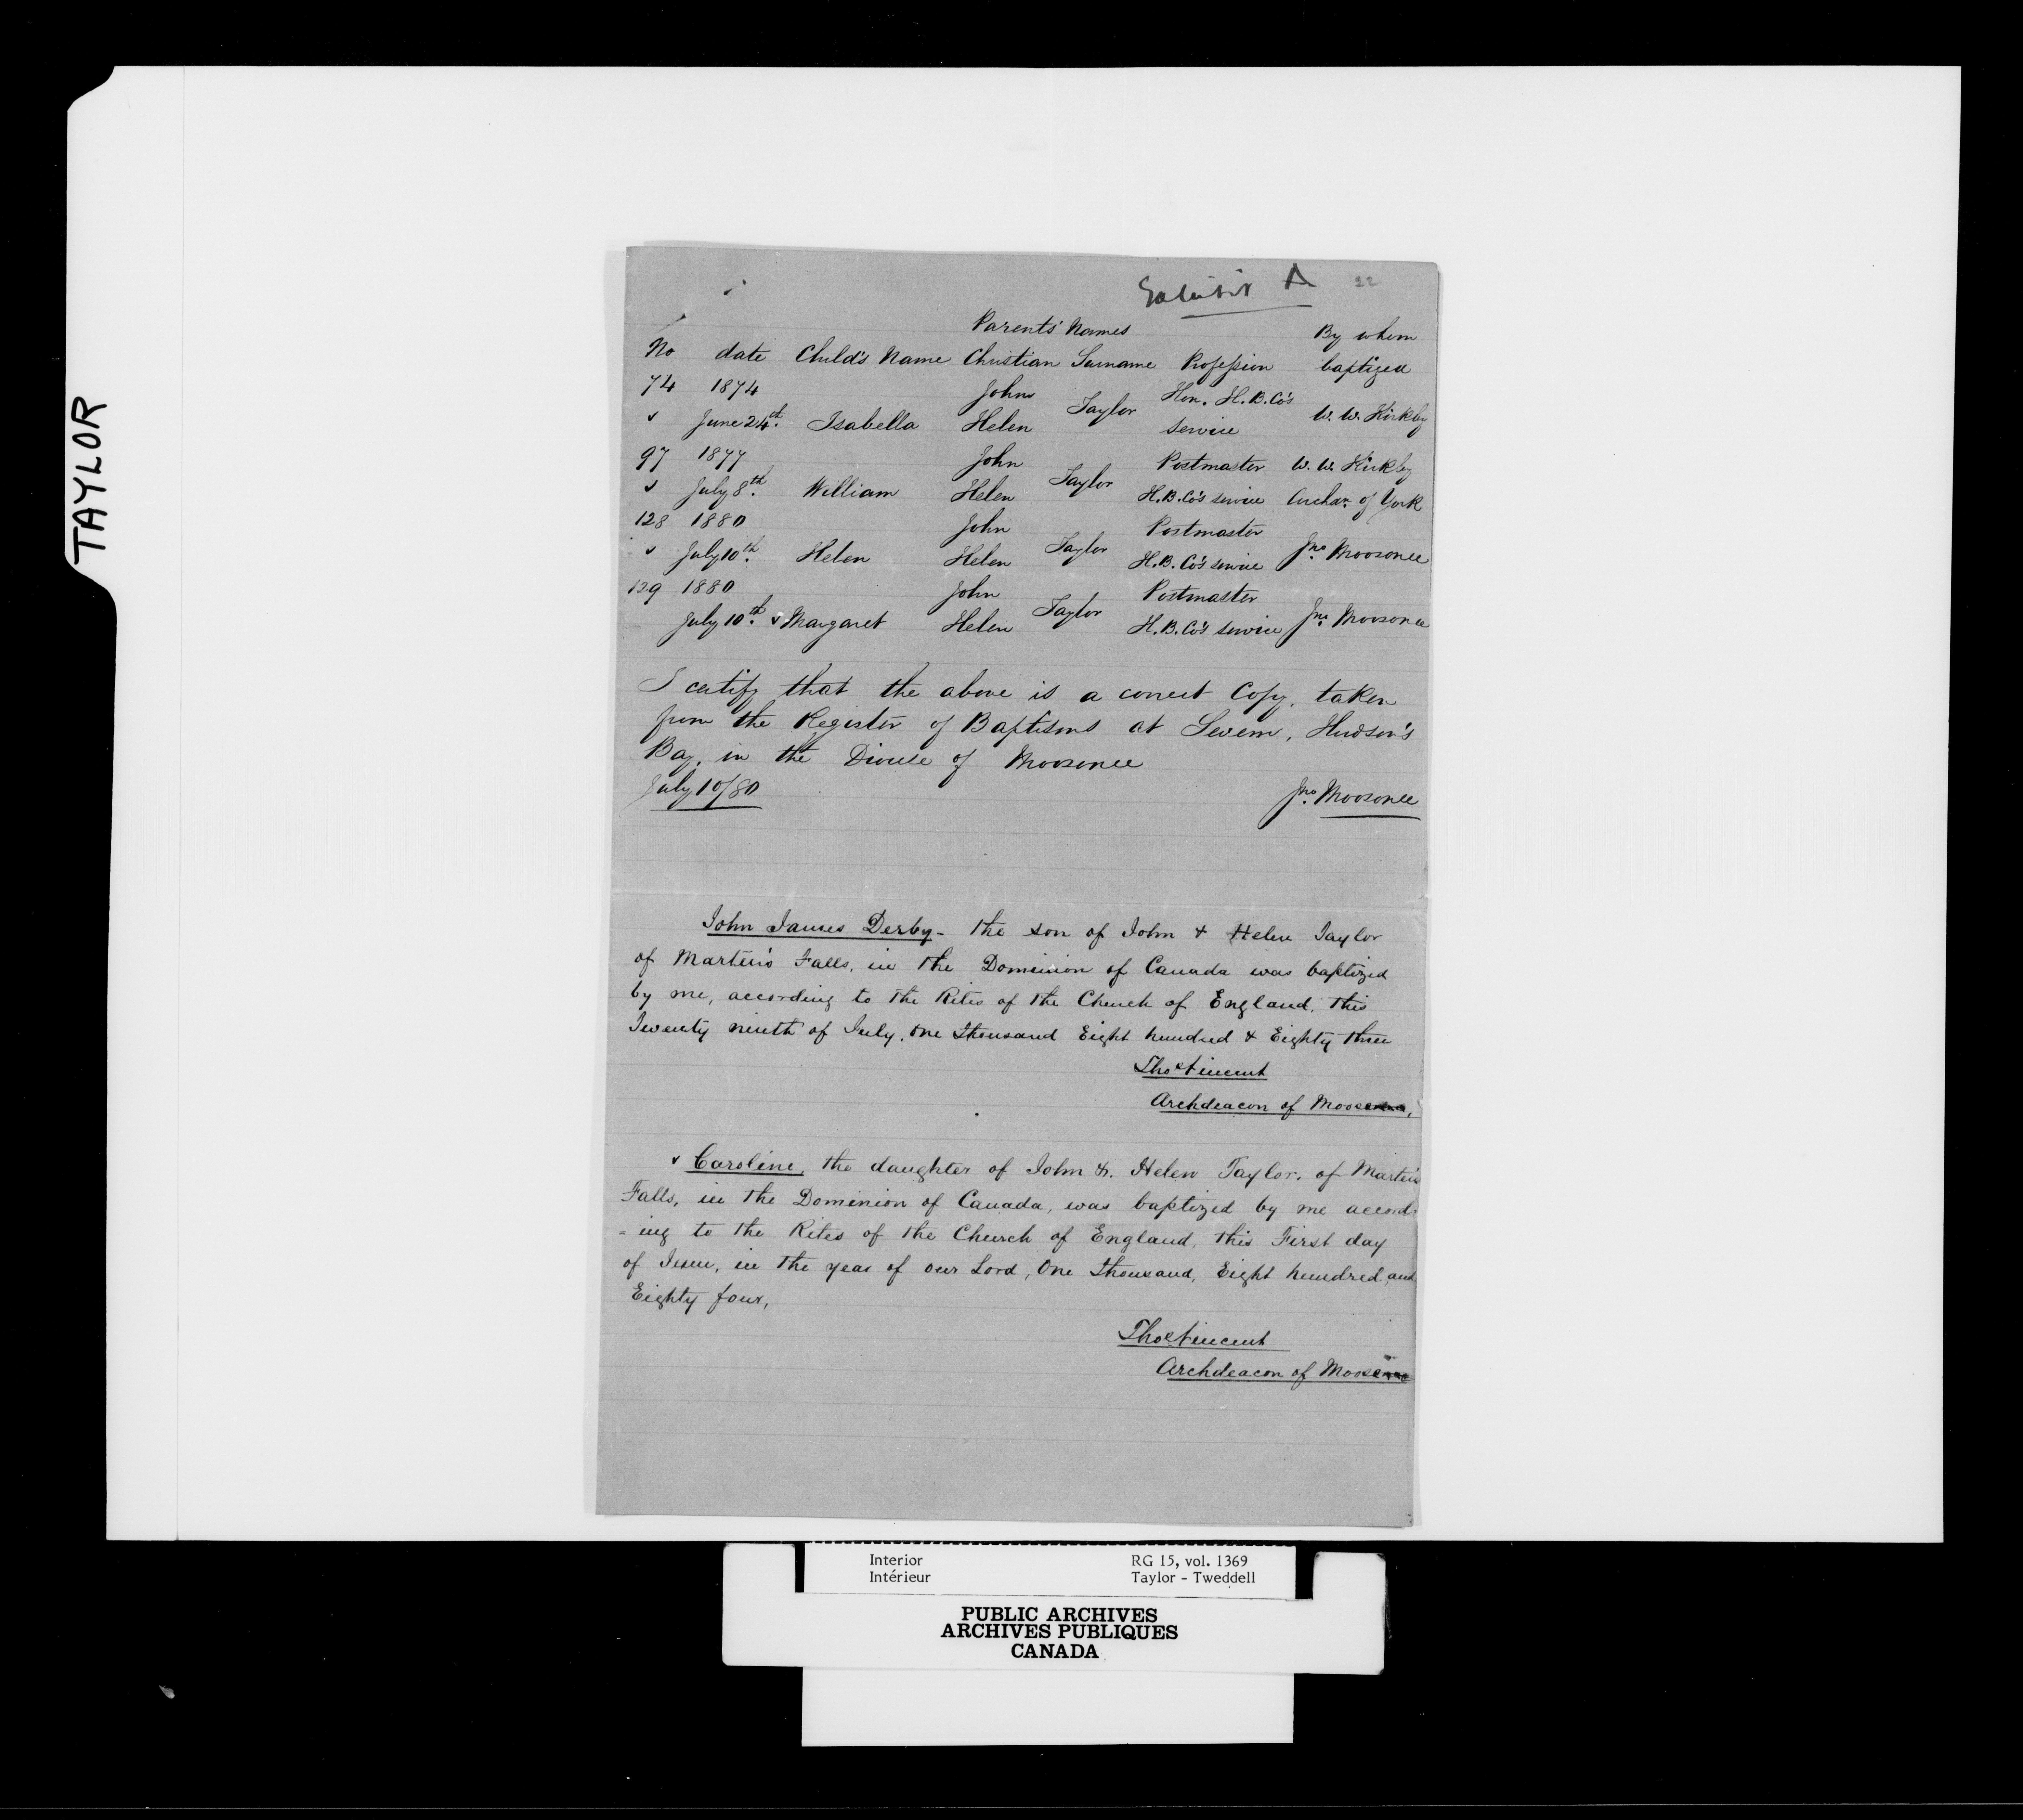 TAYLOR
Exhibit A 22
Parents' Names By whom
No date Child's Name Christian Surname Profession baptized
74 1874 John Hon. H.B.Co's
✓ June 24th. Isabella Helen Taylor Service W. W. Kirkby
97 1877 John Postmaster W. W. Kirkby
✓ July 8th. William Helen Taylor H.B.Co's service Archdn. of York
128 1880 John Postmaster
✓ July 10th. Helen Helen Taylor H.B.Co's service Jno. Moosonee
129 1880 John Postmaster
July 10th. ✓ Margaret Helen Taylor H.B.Co's service Jno. Moosonee
I certify that the above is a correct Copy, taken
from the Register of Baptisms at Severn, Hudson's
Bay, in the Diocese of Moosonee
July 10/80 Jno. Moosonee
John James Derby - the son of John & Helen Taylor
of Martin's Falls, in the Dominion of Canada was baptized
by me, according to the Rites of the Church of England, this
Twenty ninth of July, one thousand Eight hundred & Eighty three
Thos Vincent
Archdeacon of Moose
✓ Caroline, the daughter of John &. Helen Taylor, of Martin's
Falls, in the Dominion of Canada, was baptized by me accord-
=ing to the Rites of the Church of England, this First day
of June, in the year of our Lord, One thousand, Eight hundred, and
Eighty four,
Thos Vincent
Archdeacon of Moose
Interior RG 15, vol. 1369
Intérieur Taylor - Tweddell
PUBLIC ARCHIVES
ARCHIVES PUBLIQUES
CANADA